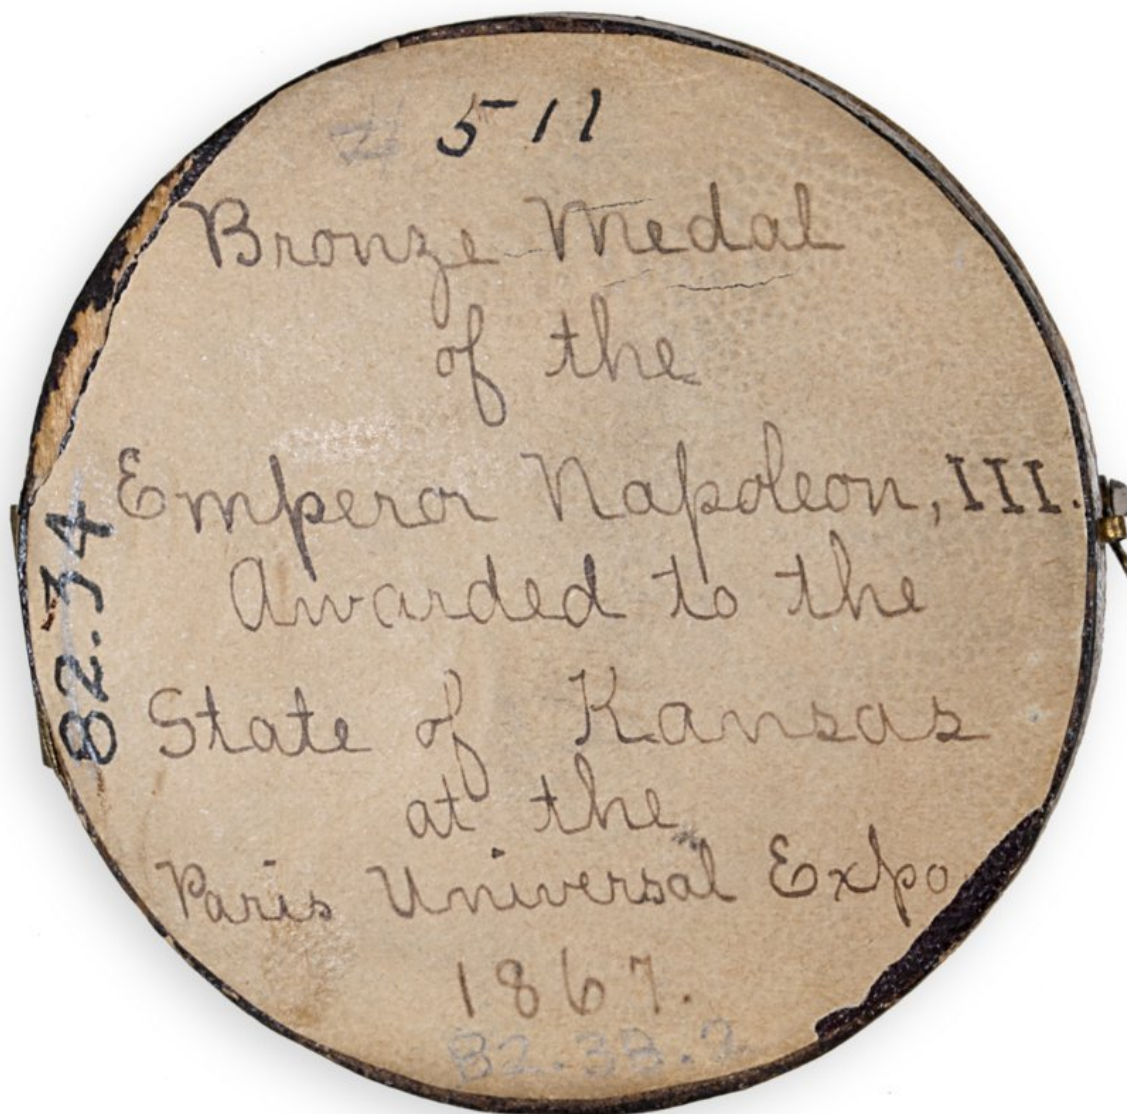 511
Bronze Medal
of the
Emperor Napoleon, III.
Awarded to the
State of Kansas
at the
Paris Universal Expo.
1867.
82.34